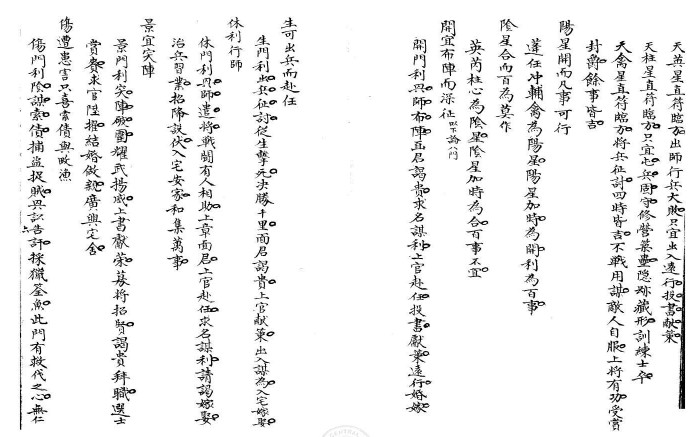 天英星直符臨方出師行兵大敗只宜出入遠行投書献策
天柱星直符臨方只宜屯兵固守修營築壘隐跡藏形訓練士卒
天禽星直符臨方將兵征討四時皆吉不戰用謀敵人自服上將有功受賞
封爵餘事皆吉
陽星開而凡事可行
蓬任冲輔禽為陽星陽星加時為開利為百事
陰星合而百為莫作
英芮柱心為陰星陰星加時為合百事不宜
開宜布陣而深征以下論八門
開門利興師布陣面君謁貴求名謀利上官赴任投書獻策遠行婚嫁
生可出兵而赴任
生門利出兵征討從生擊死決勝千里面君謁貴上官献策出入謀為入宅嫁娶
休利行師
休門利興師遣將戰鬪有人相助上章面君上官赴任求名謀利請謁嫁娶
治兵習業招降設伏入宅安家和集萬事
景宜突陣
景門利突陣破圍耀武揚威上書獻策募將招賢謁貴拜職選士
賞賚求官陞擢結婚做親廣興宅舍
傷遭患害只喜索債與畋漁
傷門利陰謀索債捕盜捉賊興訟告訐採獵筌魚此門有救伐之心無仁